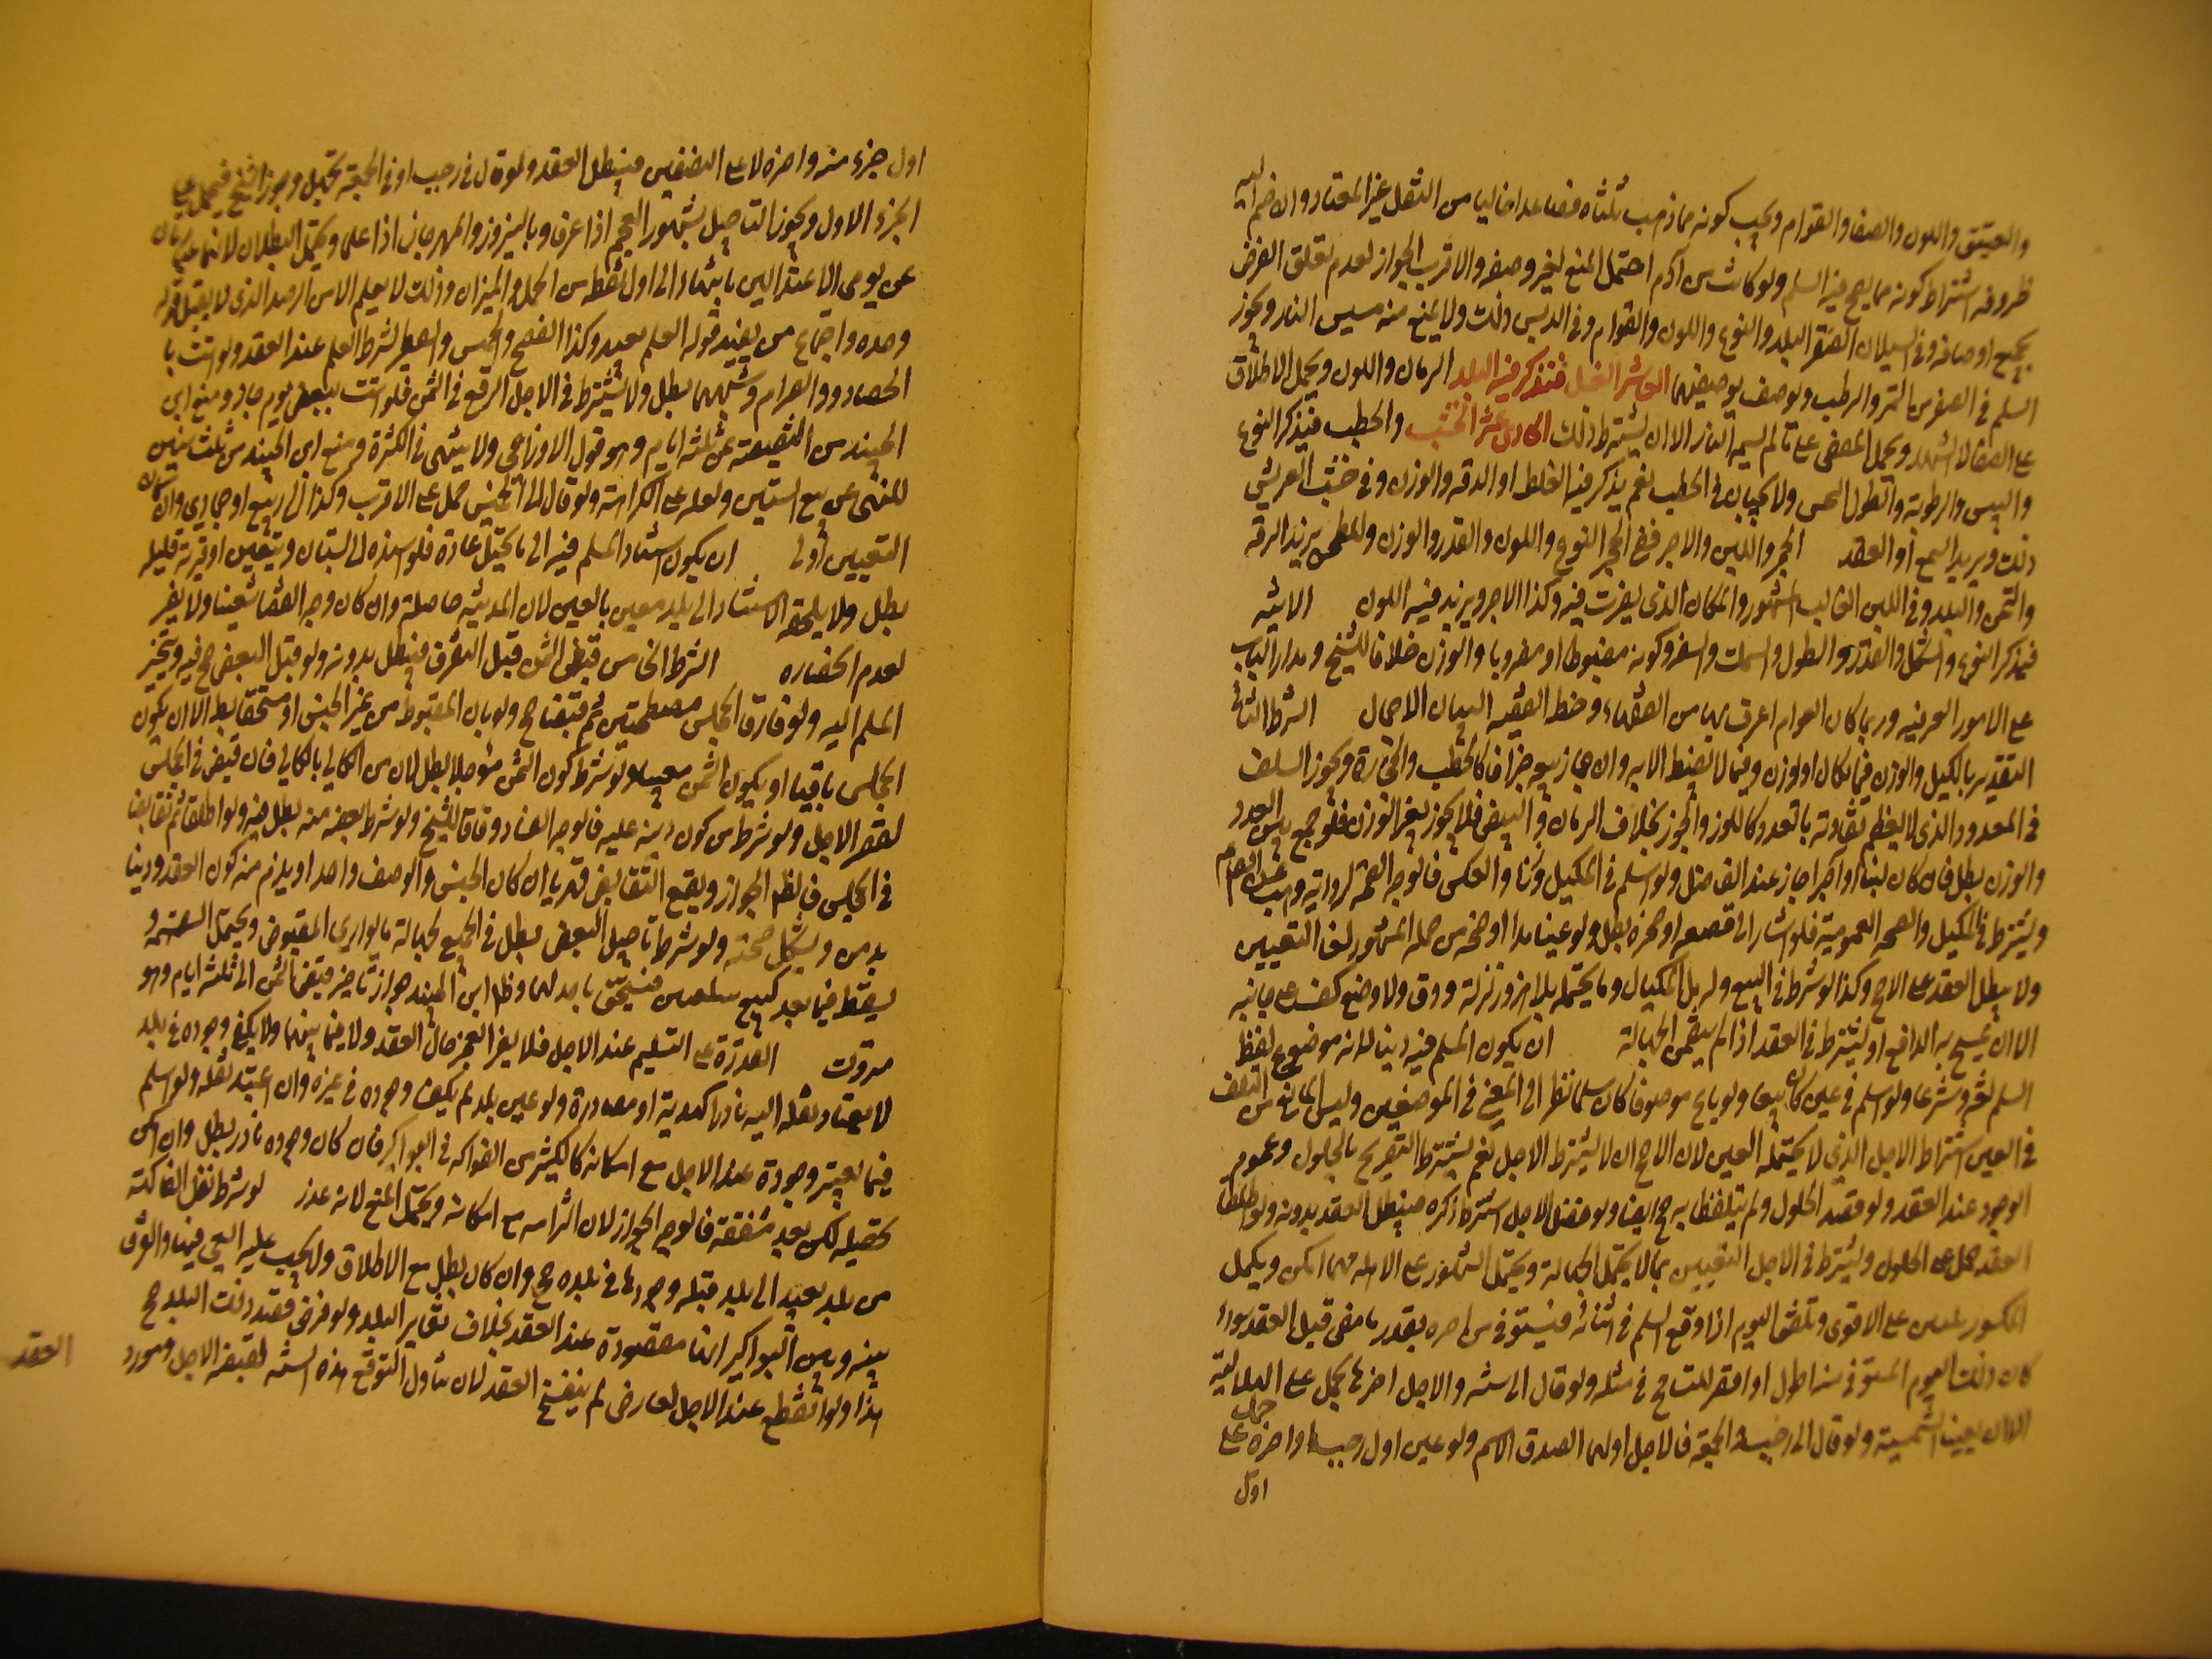 والعتيق واللون والصفا والقوام ويجب كونه مما ذهب ثلثاه فصاعدا خاليا من الثفل غير المعتاد ولا ضم اليه
ظروفه اشترط كونه مما يصح فيه السلم ولو كانت من ادم احتمل المنع لغير وصفه والاقرب الجواز لعدم تعلق الغرض
بجميع اوصافه وفي السيلان الصقر البلد والنوع واللون والقوام وفي الدبس ذلك ولا يمنع منه مسيس النار ويجوز
السلم في الصفر من التمر والرطب ويوصف بوصفيهما العاشر العسل فتذكر فيه البلد الزمان واللون ويحمل الاطلاق
على الصفا لا الشهد ويحمل المصفى على ما لم يسمه النار الا ان يشترط ذلك الحادي عشر الخشب والحطب فيذكر النوع
واليبس والرطوبة والطول ولا يجبان في الحطب نعم يذكر فيه الغلظ او الدقة والوزن وفي خشب العريش
ذلك ويزيد السمح او العقد الحجر واللبن والاجر ففي الحجر النوع واللون والقدر والوزن وللطحن يزيد الرقة
والثخن والبلد وفي اللبن القالب المشهور والمكان الذي يضرب فيه وكذا الاجر ويزيد فيه اللون الانية
فيذكر النوع والشكل والقدر والطول والسمك والسعة وكونه مضبوطا او مضروبا والوزن خلافا للشيخ ومدار الباب
على الامور العرفية وربما كان العوام اعرف بها من الفقهاء وحظ الفقيه البيان الاجمالي الشرط الثاني
التقدير بالكيل والوزن فيما يكال او يوزن وفيما لا يضبط الا به وان جاز بيعه جزافا كالحطب والحجارة ويجوز السلف
في المعدود الذي لا يعظم تفاوته بالعدد كاللوز والجوز بخلاف الرمان والبيض فلا يجوز بغير الوزن فلو جمع بين العدد
والوزن بطل فان كان لبنا او اجرا جاز عند الفاضل ولو اسلم في المكيل وزنا والعكس فالوجه الصحة لرواية وهب عن علي
ويشترط في المكيل والصنجة العمومية فلو اشار الى قصعة او صخرة بطل ولو عينا مدا او صنجة من جملة المشهور لغى التعيين
ولا يبطل العقد على الاصح وكذا لو شرط في البيع وله بل المكيال وما يحتمله بلا هز ولا زلزلة ودق ولا وضع كف على جانبه
الا ان يسمح به الدافع او يشترط في العقد اذا لم يتضمن الجهالة ان يكون المسلم فيه دينا لانه موضوع لفظ
السلم لغة وشرعا ولو اسلم في عين كان بيعا ولو باع موصوفا كان سلما نظرا الى المعنى في الموضعين وليس المانع من السلف
في العين اشتراط الاجل الذي لا يحتمله العين لان الاصح ان لا يشترط الاجل نعم يشترط التصريح بالحلول وعموم
الوجود عند العقد ولو قصد الحلول ولم يتلفظا به صح ايضا ولو قصد الاجل اشترط ذكره فيبطل العقد بدونه ولو اطلقا
العقد حمل على الحلول ويشترط في الاجل التعيين بما لا يحتمل الجهالة ويحتمل الشهور على الاهلة مهما امكن ويكمل
المكسور ثلثين على الاقوى وتلفق اليوم اذا وقع السلم في اثنائه فيستوفى من اخره بقدر ما مضى قبل العقد سواء
كان ذلك اليوم المستوفى منه اطول او اقصر للتسامح في مثله ولو قال الى سنة والاجل اخرها يحمل على الهلالية
الا ان يعينا الشمسية ولو قال الى رجب او الجمعة فالاجل اولهما لصدق الاسم ولو عين اول رجب او اخره حمل على
اول
اول جزء منه واخره لا على النصفين فيبطل العقد ولو قال في رجب او في الجمعة بطل وجوزه الشيخ فيحمل على
الجزء الاول ويجوز التاجيل بشهور العجم اذا عرفا وبالنيروز والمهرجان اذا علما ويحتمل البطلان لانهما عبارتان
عن يومي الاعتدالين بانتهاء الى اول نقطة من الحمل والميزان وذلك لا يعلم الا من الرصد الذي لا يقبل قوله
وحده واجتماع من يفيد قوله العلم بعيد وكذا الفصح والخميس والفطر لشرط العلم عند العقد ولو اقت با
لحصاد والصرام وشبههما بطل ولا يشترط في الاجل الوقع في الثمن فلو اقت ببعض يوم جاز ومنع ابن
الجنيد من النقيصة عن ثلثة ايام وهو قول الاوزاعي ولا ينتهي في الكثرة ومنع ابن الجنيد من ثلث سنين
للنهي عن بيع السنين ولعله على الكراهة ولو قال الى الخميس حمل على الاقرب وكذا الى ربيع او جمادي وان كان
التعيين اولى ان يكون استناد المسلم فيه الى ما يحتمل عادة فلو اسنده الى بستان وبتعين او قرية قليلة
بطل ولا يلحقه الاستناد الى بلد معين بالعين لان المدينة حاصلة وان كان وجه الصفا شعينا ولا يضر
لعدم انحصاره الشرط الخامس قبض الثمن قبل التفرق فيبطل بدونه ولو قبل البعض صح فيه ويتخير
المسلم اليه ولو فارقا المجلس مصطحبين ثم تقابضا صح ولو بان المقبوض من غير الجنس او مستحقا بطل الا ان يكون
المجلس باقيا او يكون الثمن معينا ولو شرط كون الثمن مؤجلا بطل لان من الكالي بالكالي فان قبض في المجلس
لقصر الاجل ولو شرط كون دينه عليه فالوجه الفساد وفاقا للشيخ ولو شرط بعضه منه بطل فيه ولو اطلقا ثم تقابضا
في المجلس فالظاهر الجواز ويقع التقابض قهريا ان كان الجنس والوصف واحدا ويلزم منه كون العقد دينا
بدين ويشكل صحته ولو شرط تاجيل البعض بطل في الجميع لجهالة ما يوازي المقبوض ويحتمل الصحة و
يقسط فيما بعد كبيع سلعتين فيستحق باحدهما وظاهر ابن الجنيد جواز تاخير قبض الثمن الى ثلثة ايام وهو
متروك القدرة على التسليم عند الاجل فلا يضر العجز حال العقد ولا فيما بينهما ولا يكفي وجوده في بلد
لا يعتاد نقله اليه نادرا كهدية او مصادرة ولو عين بلد لم يكف وجوده في غيره وان اعتيد نقله ولو اسلم
فيما يعسر وجوده عند الاجل مع امكانه كالكثير من الفواكه في البواكير فان كان وجوده نادرا بطل وان امكن
تحصيله لكن بعد مشقة فالوجه الجواز لان التزامه مع امكانه ويحتمل المنع لانه غرر لو شرط نقل الفاكهة
من بلد بعيد الى بلده قبله وجودها في بلده صح وان كان يبطل مع الاطلاق ولا يجب عليه السعي فيها والفرق
بينه وبين البواكير انها مقصودة عند العقد بخلاف تغاير البلد ولو فرض قصد ذلك البلد صح
هذا ولو انقطع عند الاجل لعارض لم ينفسخ العقد لان تناول التوقع هذه السنة لقضية الاجل ومورد
العقد